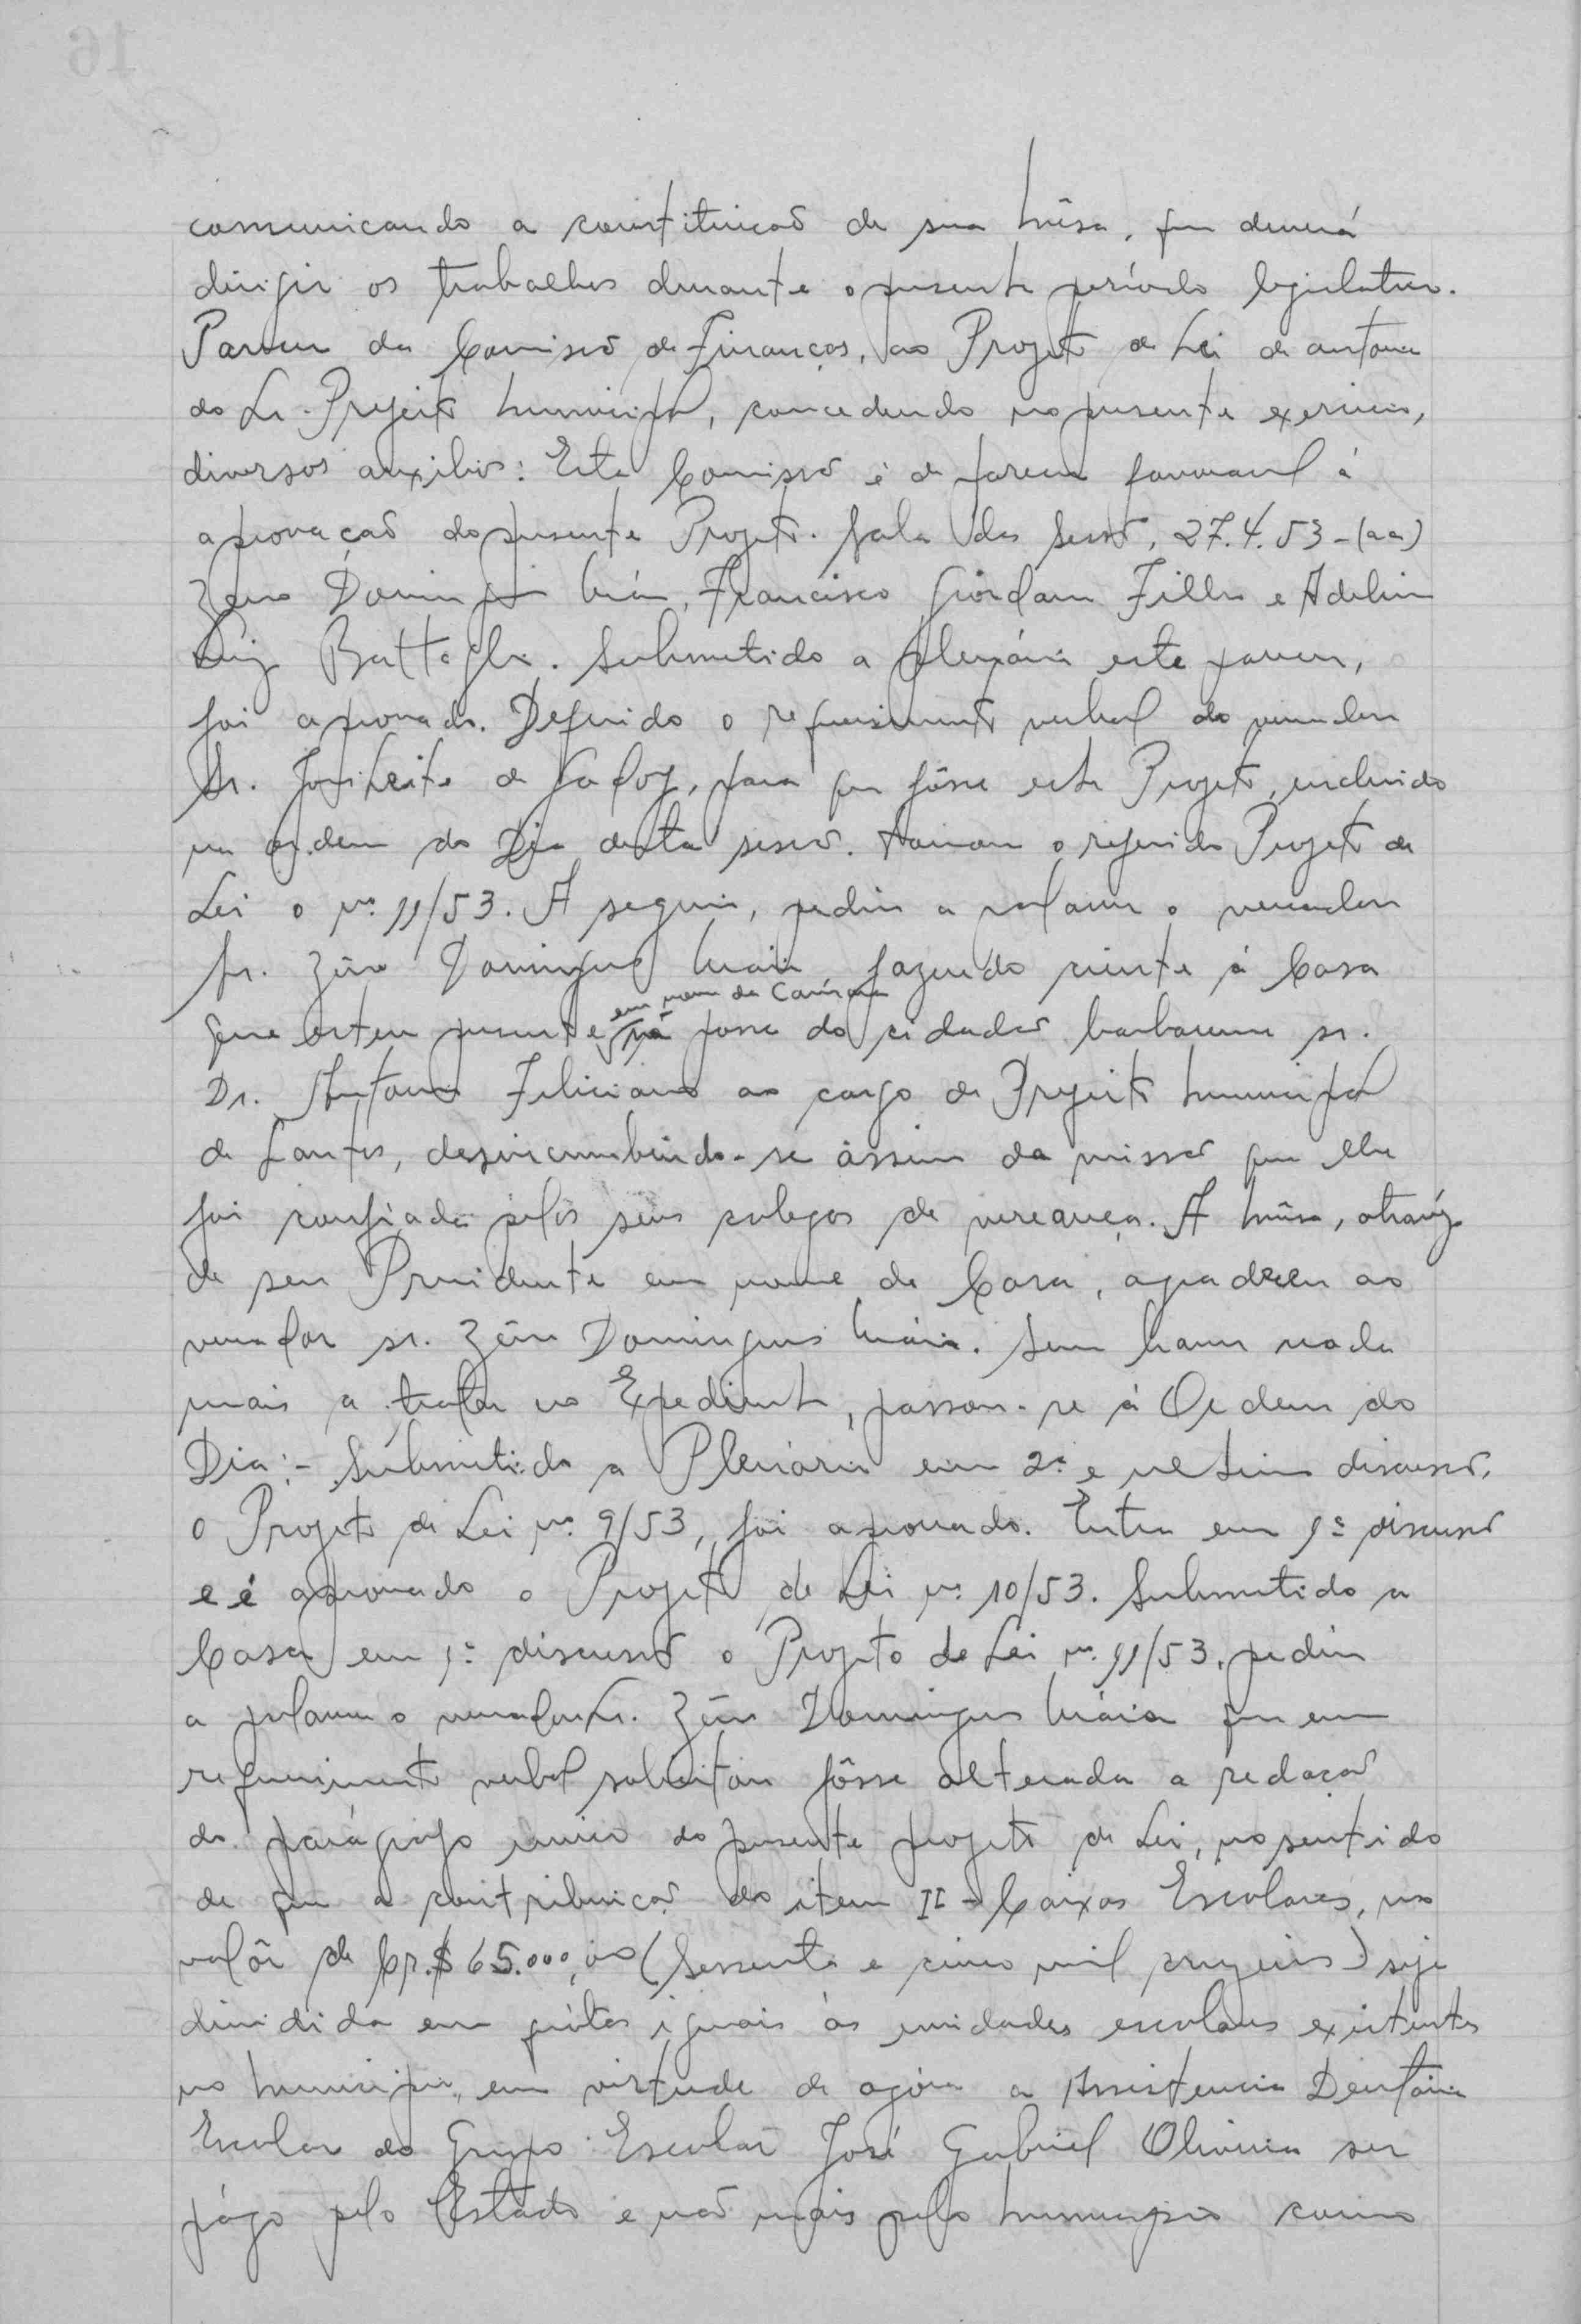 comunicando a constituição de sua Mêsa, que deverá
dirigir os trabalhos durante o presente período legislativo.
Parecer da Comissão de Finanças, ao Projeto de Lei de autoria
do Sr. Prefeito Municipal, concedendo no presente exercício,
diversos auxilios: Esta Comissão é de parecer favoravel á
aprovação do presente Projeto. Sala das Sessões, 27.4.53 - (aa)
Zeno Domingues Maia, Francisco Giordano Filho e Adelino
Luiz Battaglia. Submetido a Plenário este parecer,
foi aprovado. Deferido o requerimento verbal do vereador
Sr. José Leite de Godoy, para que fôsse este Projeto, incluido
na Ordem do Dia desta sessão. Tomou o referido Projeto de
Lei o nº 11/53. A seguir, pediu a palavra o vereador
Sr. Zêno Domingues Maia, fazendo ciente á Casa
em nome da Camara
que esteve presente na posse do cidadão barbarense sr.
Dr. Antonio Feliciano ao cargo de Prefeito Municipal
de Santos, desincumbindo-se assim da missão que lhe
foi confiada pelos seus colegas de vereança. A Mêsa, atravéz
de seu Presidente em nome da Casa, agradeceu ao
vereador sr. Zêno Domingues Maia. Sem haver nada
mais a tratar no Expediente, passou-se á Ordem do
Dia:- Submetido a Plenário em 2ª e ultima discussão,
o Projeto de Lei nº 9/53, foi aprovado. Entra em 1ª discussão
e é aprovado o Projeto de Lei nº 10/53. Submetido a
Casa em 1ª discussão o Projeto de Lei nº 11/53, pediu
a palavra o vereador Sr. Zêno Domingues Maia que em
requerimento verbal solicitou fôsse alterada a redação
do parágrafo unico do presente projeto de Lei, no sentido
de que a contribuição do item II - Caixas Escolares, no
valôr de Cr.$ 65.000,00 (Sessenta e cinco mil cruzeiros) seja
dividida em partes iguais ás unidades escolares existentes
no Municipio, em virtude de agóra a Assistencia Dentária
Escolar do Grupo Escolar José Gabriel Oliveira ser
págo pelo Estado e não mais pelo Municipio como